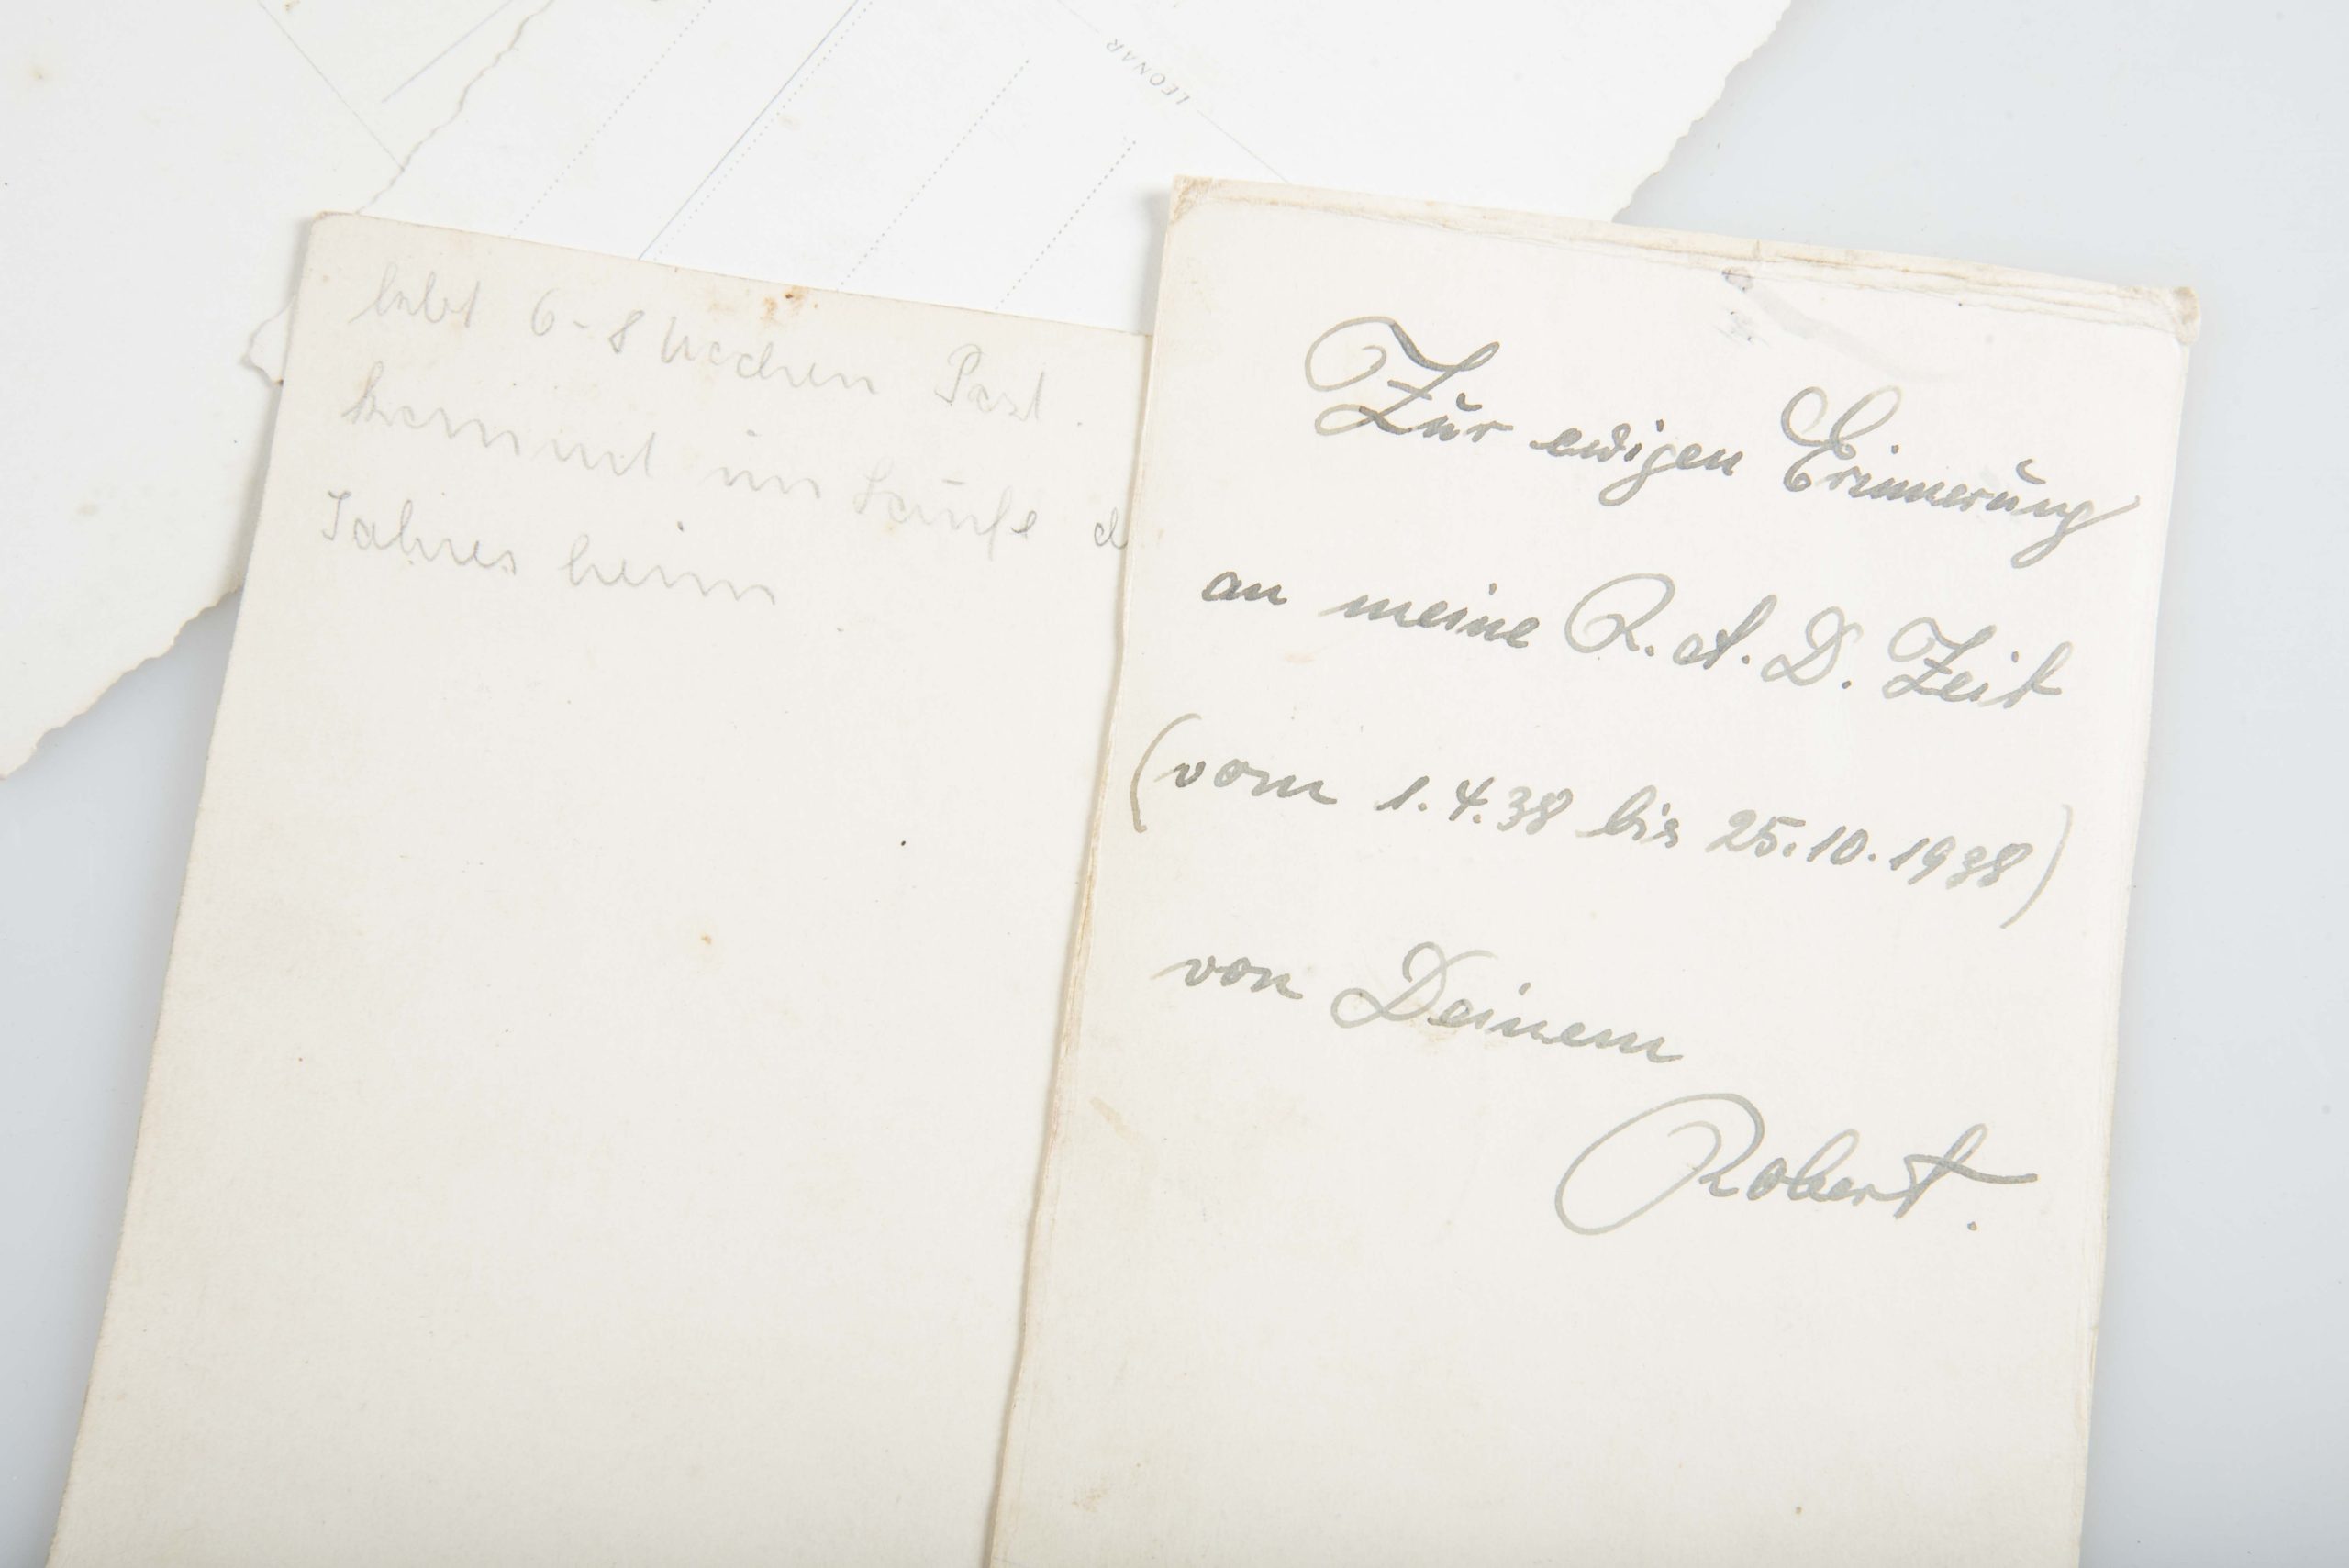 LEONAR
lebt 6-8 Wochen Post.
kommt im Laufe d
Jahres heim
Zur ewigen Erinnerung
an meine R.A.D. Zeit
(vom 1.4.38 bis 25.10.1938)
von Deinem
Robert.